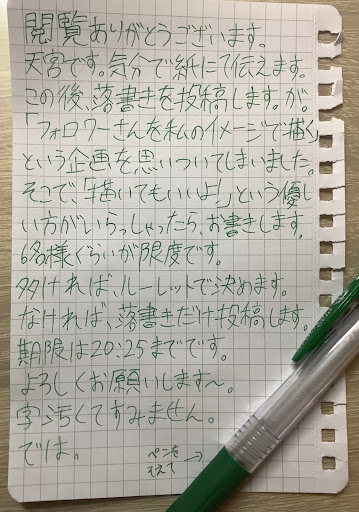 閲覧ありがとうございます。
天宮です。気分で紙にて伝えます。
この後、落書きを投稿します。が、
「フォロワーさんを私のイメージで描く」
という企画を思いついてしまいました。
そこで、「描いてもいいよ!」という優し
い方がいらっしゃったら、お書きします。
6名様くらいが限度です。
多ければ、ルーレットで決めます。
なければ、落書きだけ投稿します。
期限は20:25までです。
よろしくお願いします〜。
字汚くてすみません。
では。
ペンを
添えて →